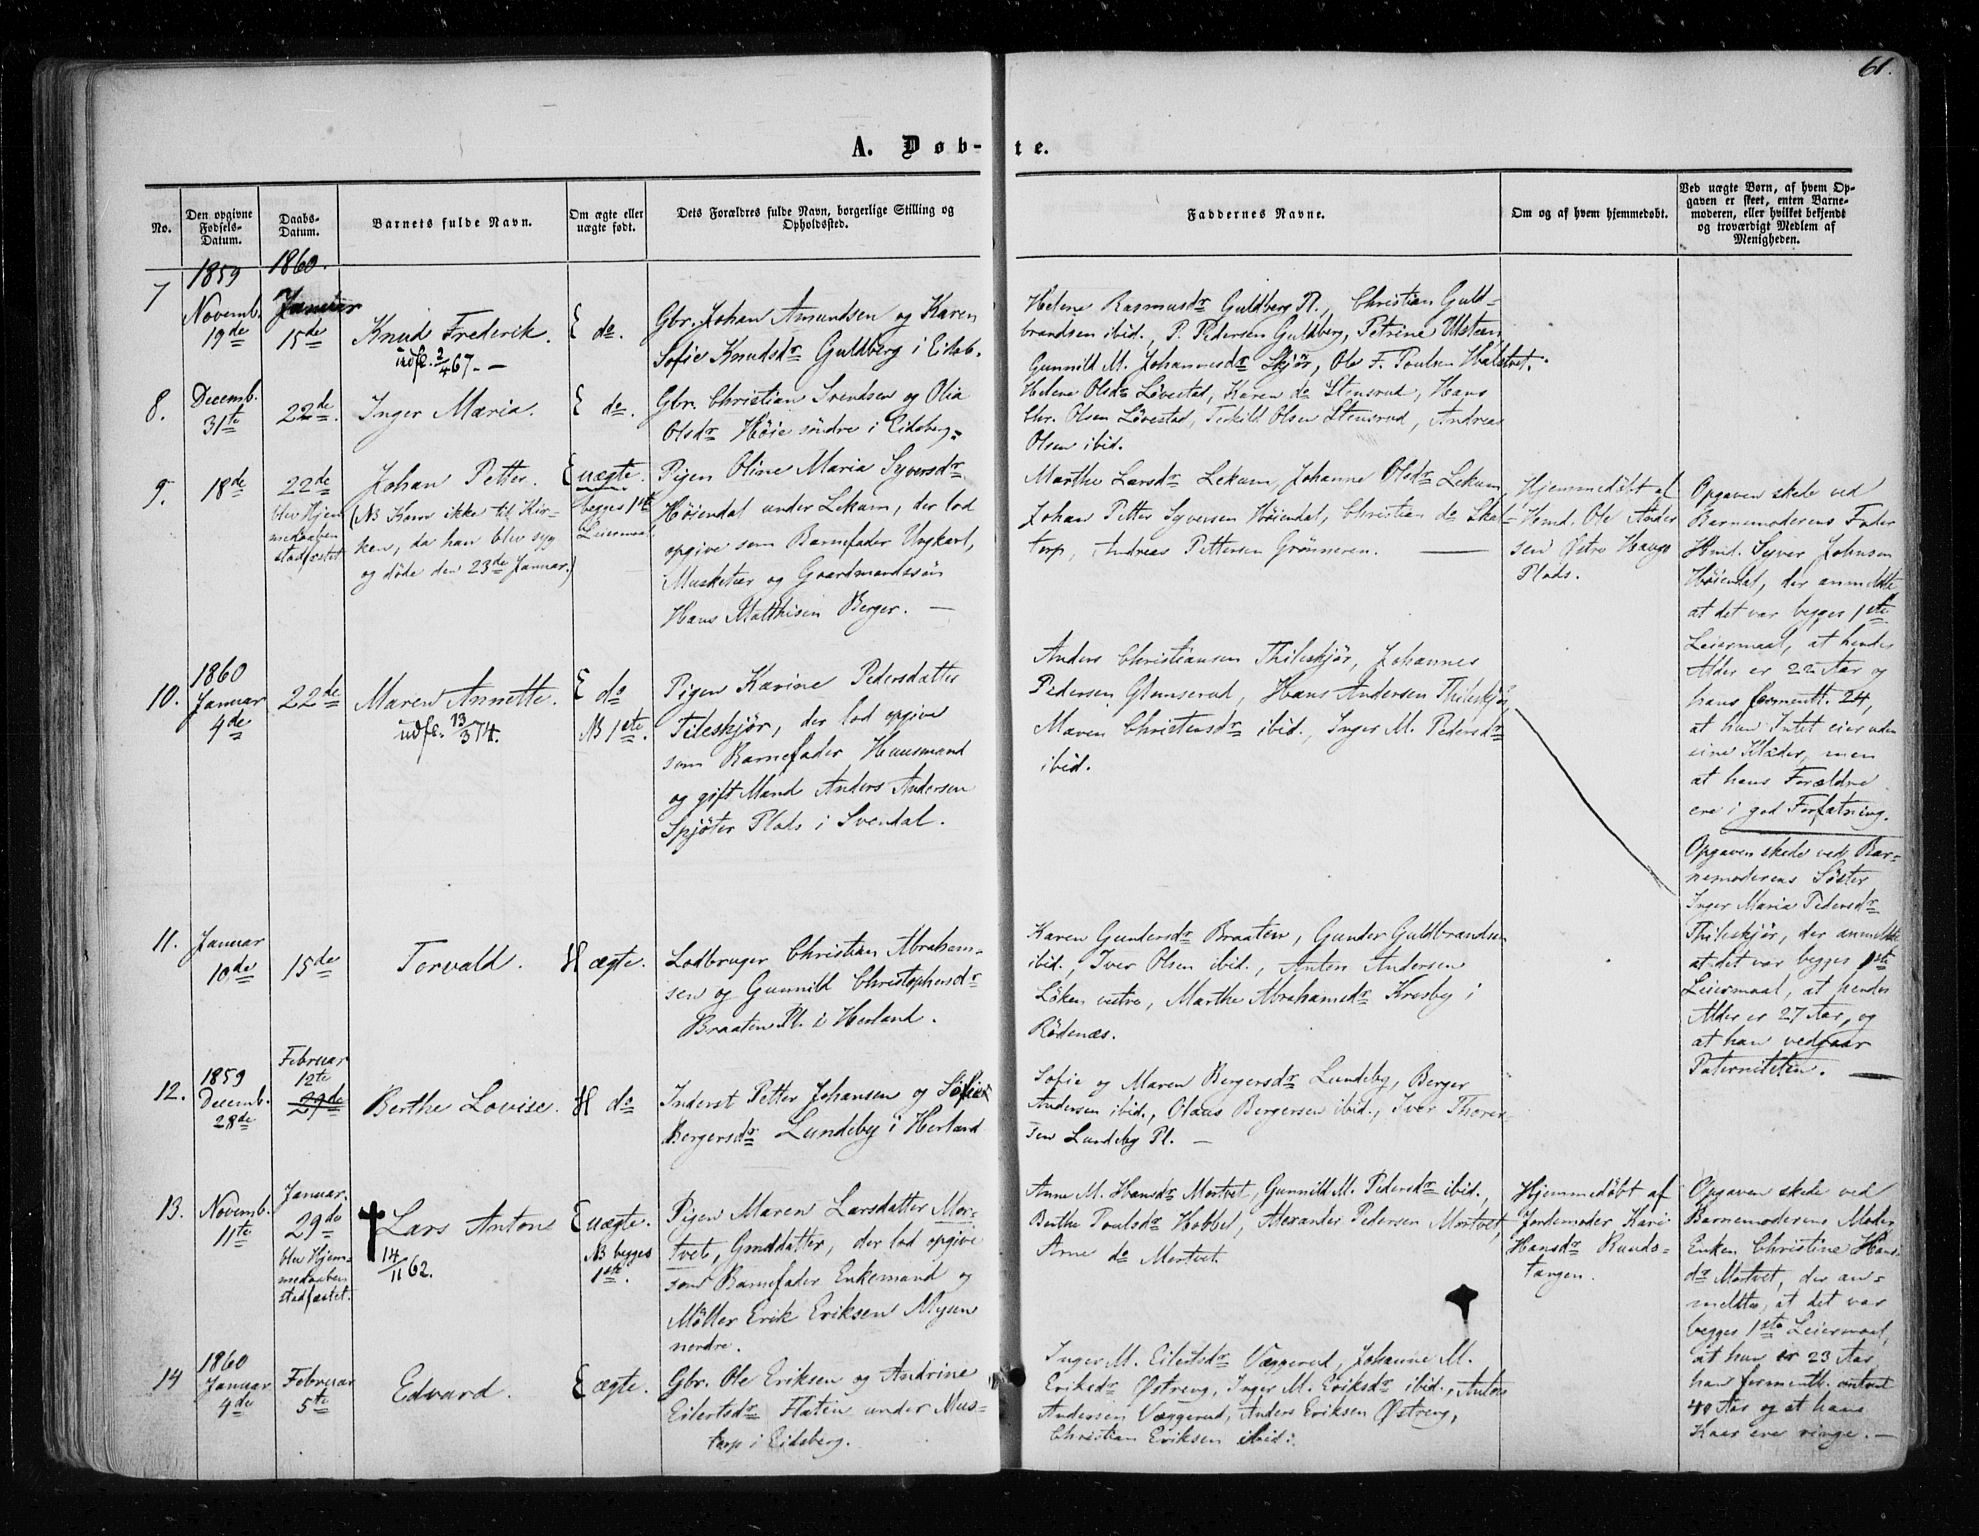 61.
A. Døb-te.
No.
Den opgivne
Fødsels-
Datum.
Daabs-
Datum.
Barnets fulde Navn.
Om ægte eller
uægte født.
Dets Forældres fulde Navn, borgerlige Stilling og
Opholdssted.
Faddernes Navne.
Om og af hvem hjemmedøbt.
Ved uægte Børn, af hvem Op-
gaven er skeet, enten Barne-
moderen, eller hvilket bekjendt
og troværdigt Medlem af
Menigheden.
7
1859
Novemb.
19de
1860.
Januar
15de
Knud Frederik.
udfl. 2/4 67. -
E do.
Gbr. Johan Amundsen og Karen
Sofie Knudsdr Guldberg i Eidsb.
Helene Rasmusdr Guldberg Pl., Christian Guld-
brandsen ibid., P. Pedersen Guldberg, Petrine Ulstæn
Gunnild M. Johannesdr Skjør, Ole F. Poulsen Halstvet.
8.
Decemb.
31te
22de.
Inger Maria.
E do.
Gbr. Christian Svendsen og Olia
Olsdr Høie søndre i Eidsberg.
Helene Olsdr Løvestad, Karen do Stensrud, Hans
Chr. Olsen Løvestad, Terkild Olsen Stensrud, Andreas
Olsen ibid.
9.
18de
22de
blev Hjem
medaaben
stadfæstet
Johan Petter.
(NB Kom ikke til Kir-
ken, da han blev syg
og døde den 23de Januar.)
E uægte.
begges 1ste
Leiermaal
Pigen Oline Maria Syversdr
Høiendal under Lekum, der lod
opgive som Barnefader Ungkarl,
Musketeer og Gaardmandssøn
Hans Matthisen Berger. —
Marthe Larsdr Lekum, Johanne Olsdr Lekum,
Johan Petter Syversen Høiendal, Christian do Skal-
torp, Andreas Pettersen Grønneren. —
Hjemmedøbt af
Hmd. Ole Ander
sen Østre Hauge
Plads.
Opgaven skede ved
Barnemoderens Fader
Hmd. Syver Johnsen
Høiendal, der anmeldte
at det var begges 1ste
Leiermaal, at hendes
Alder er 22 Aar og
hans formentl. 24,
at han Intet eier uden
sine Klæder, men
at hans Forældre
ere i god Forfatning.
10.
1860
Januar
4de
22de
Maren Annette.
udfl. 13/3 74.
E do
NB 1ste.
Pigen Karine Pedersdatter
Tileskjør, der lod opgive
som Barnefader Huusmand
og gift Mand Anders Andersen
Spjøter Plads i Svendal.
Anders Christiansen Thileskjør, Johannes
Pedersen Glenserud, Hans Andersen Thileskjør,
Maren Christensdr ibid., Inger M. Pedersdr
ibid.
Opgaven skede ved Bar-
nemoderens Søster
Inger Maria Pedersdr
Thileskjør, der anmeldte
at det var begges 1ste
Leiermaal, at hendes
Alder er 27 Aar, og
at han vedgaar
Paterniteten. —
11.
Januar
10de
15de
Torvald.
H ægte.
Lodbruger Christian Abraham-
sen og Gunnild Christophersdr
Braaten Pl. i Herland.
Karen Gundersdr Braaten, Gunder Guldbrandsen
ibid., Iver Olsen ibid., Anton Andersen
Løken vestre, Marthe Abrahamsdr Kresby i
Rødenæs.
12.
1859
Decemb.
28de
Februar
12te
29de
Berthe Lovise.
H do
Inderst Petter Johansen og Sofie
Bergersdr Lundeby i Herland
Sofie og Maren Bergersdr Lundeby, Berger
Andersen ibid., Olaus Bergersen ibid., Iver Thores-
sen Lundeby Pl. —
13.
Novemb.
11te
Januar.
29de
blev Hjem-
medaaben
stadfæstet.
Lars Anton
14/11 62.
E uægte.
NB begges
1ste.
Pigen Maren Larsdatter Mor-
tvet, Gmddatter, der lod opgive
som Barnefader Enkemand og
Møller Erik Eriksen Mysen
nordre.
Anne M. Hansdr Mortvet, Gunnild M. Pedersdr ibid.,
Berthe Poulsdr Hobbel, Alexander Pedersen Mortvet,
Arne do Mortvet.
Hjemmedøbt af
Jordemoder Kari
Hansdr Runds-
tangen.
Opgaven skede ved
Barnemoderens Moder
Enken Christine Hans
dr Mortvet, der an-
meldte, at det var
begges 1ste Leiermaal,
at hun er 23 Aar,
han formentl. omtrent
40 Aar og at hans
Kaar ere ringe. —
14
1860
Januar
4de
Februar
5te
Edvard.
E ægte.
Gbr. Ole Eriksen og Andrine
Eilertsdr Flaten under Mus-
torp i Eidsberg.
Inger M. Eilertsdr Væggerud, Johanne M.
Eriksdr Østreng, Inger M. Eriksdr ibid., Anton
Andersen Væggerud, Anders Eriksen Østreng,
Christian Eriksen ibid.